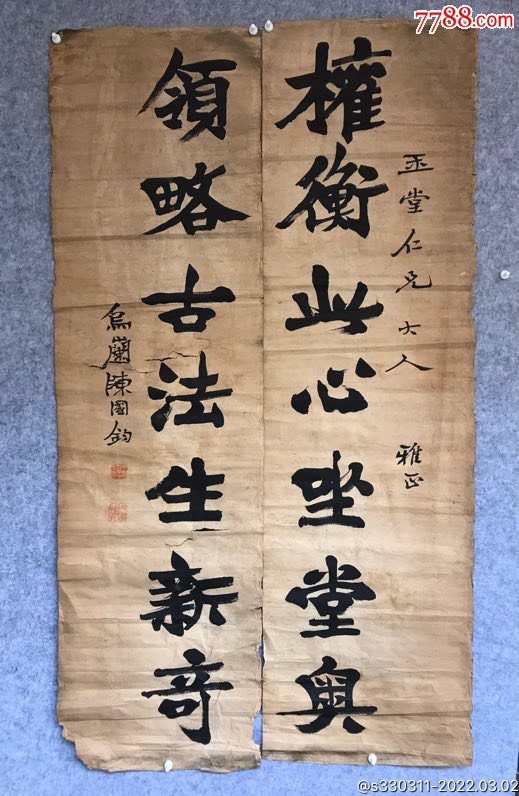 7788.com
玉堂仁兄大人 雅正
權衡此心坐堂奥
領略古法生新奇
烏蘭陳國鈞
@s330311-2022.03.02